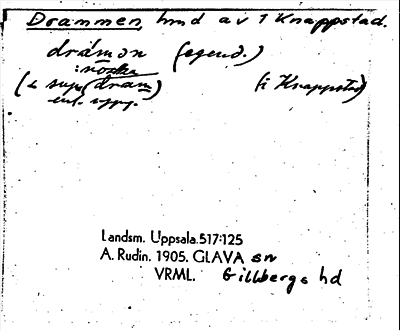 Drammen, hmd av 1 Knappstad.
dråmən (egend.)
: norska
(< sup. (dram) (i Knappstad)
enl. upp.
Landsm. Uppsala.517:125
A. Rudin. 1905. GLAVA sn
VRML. Gillbergs hd